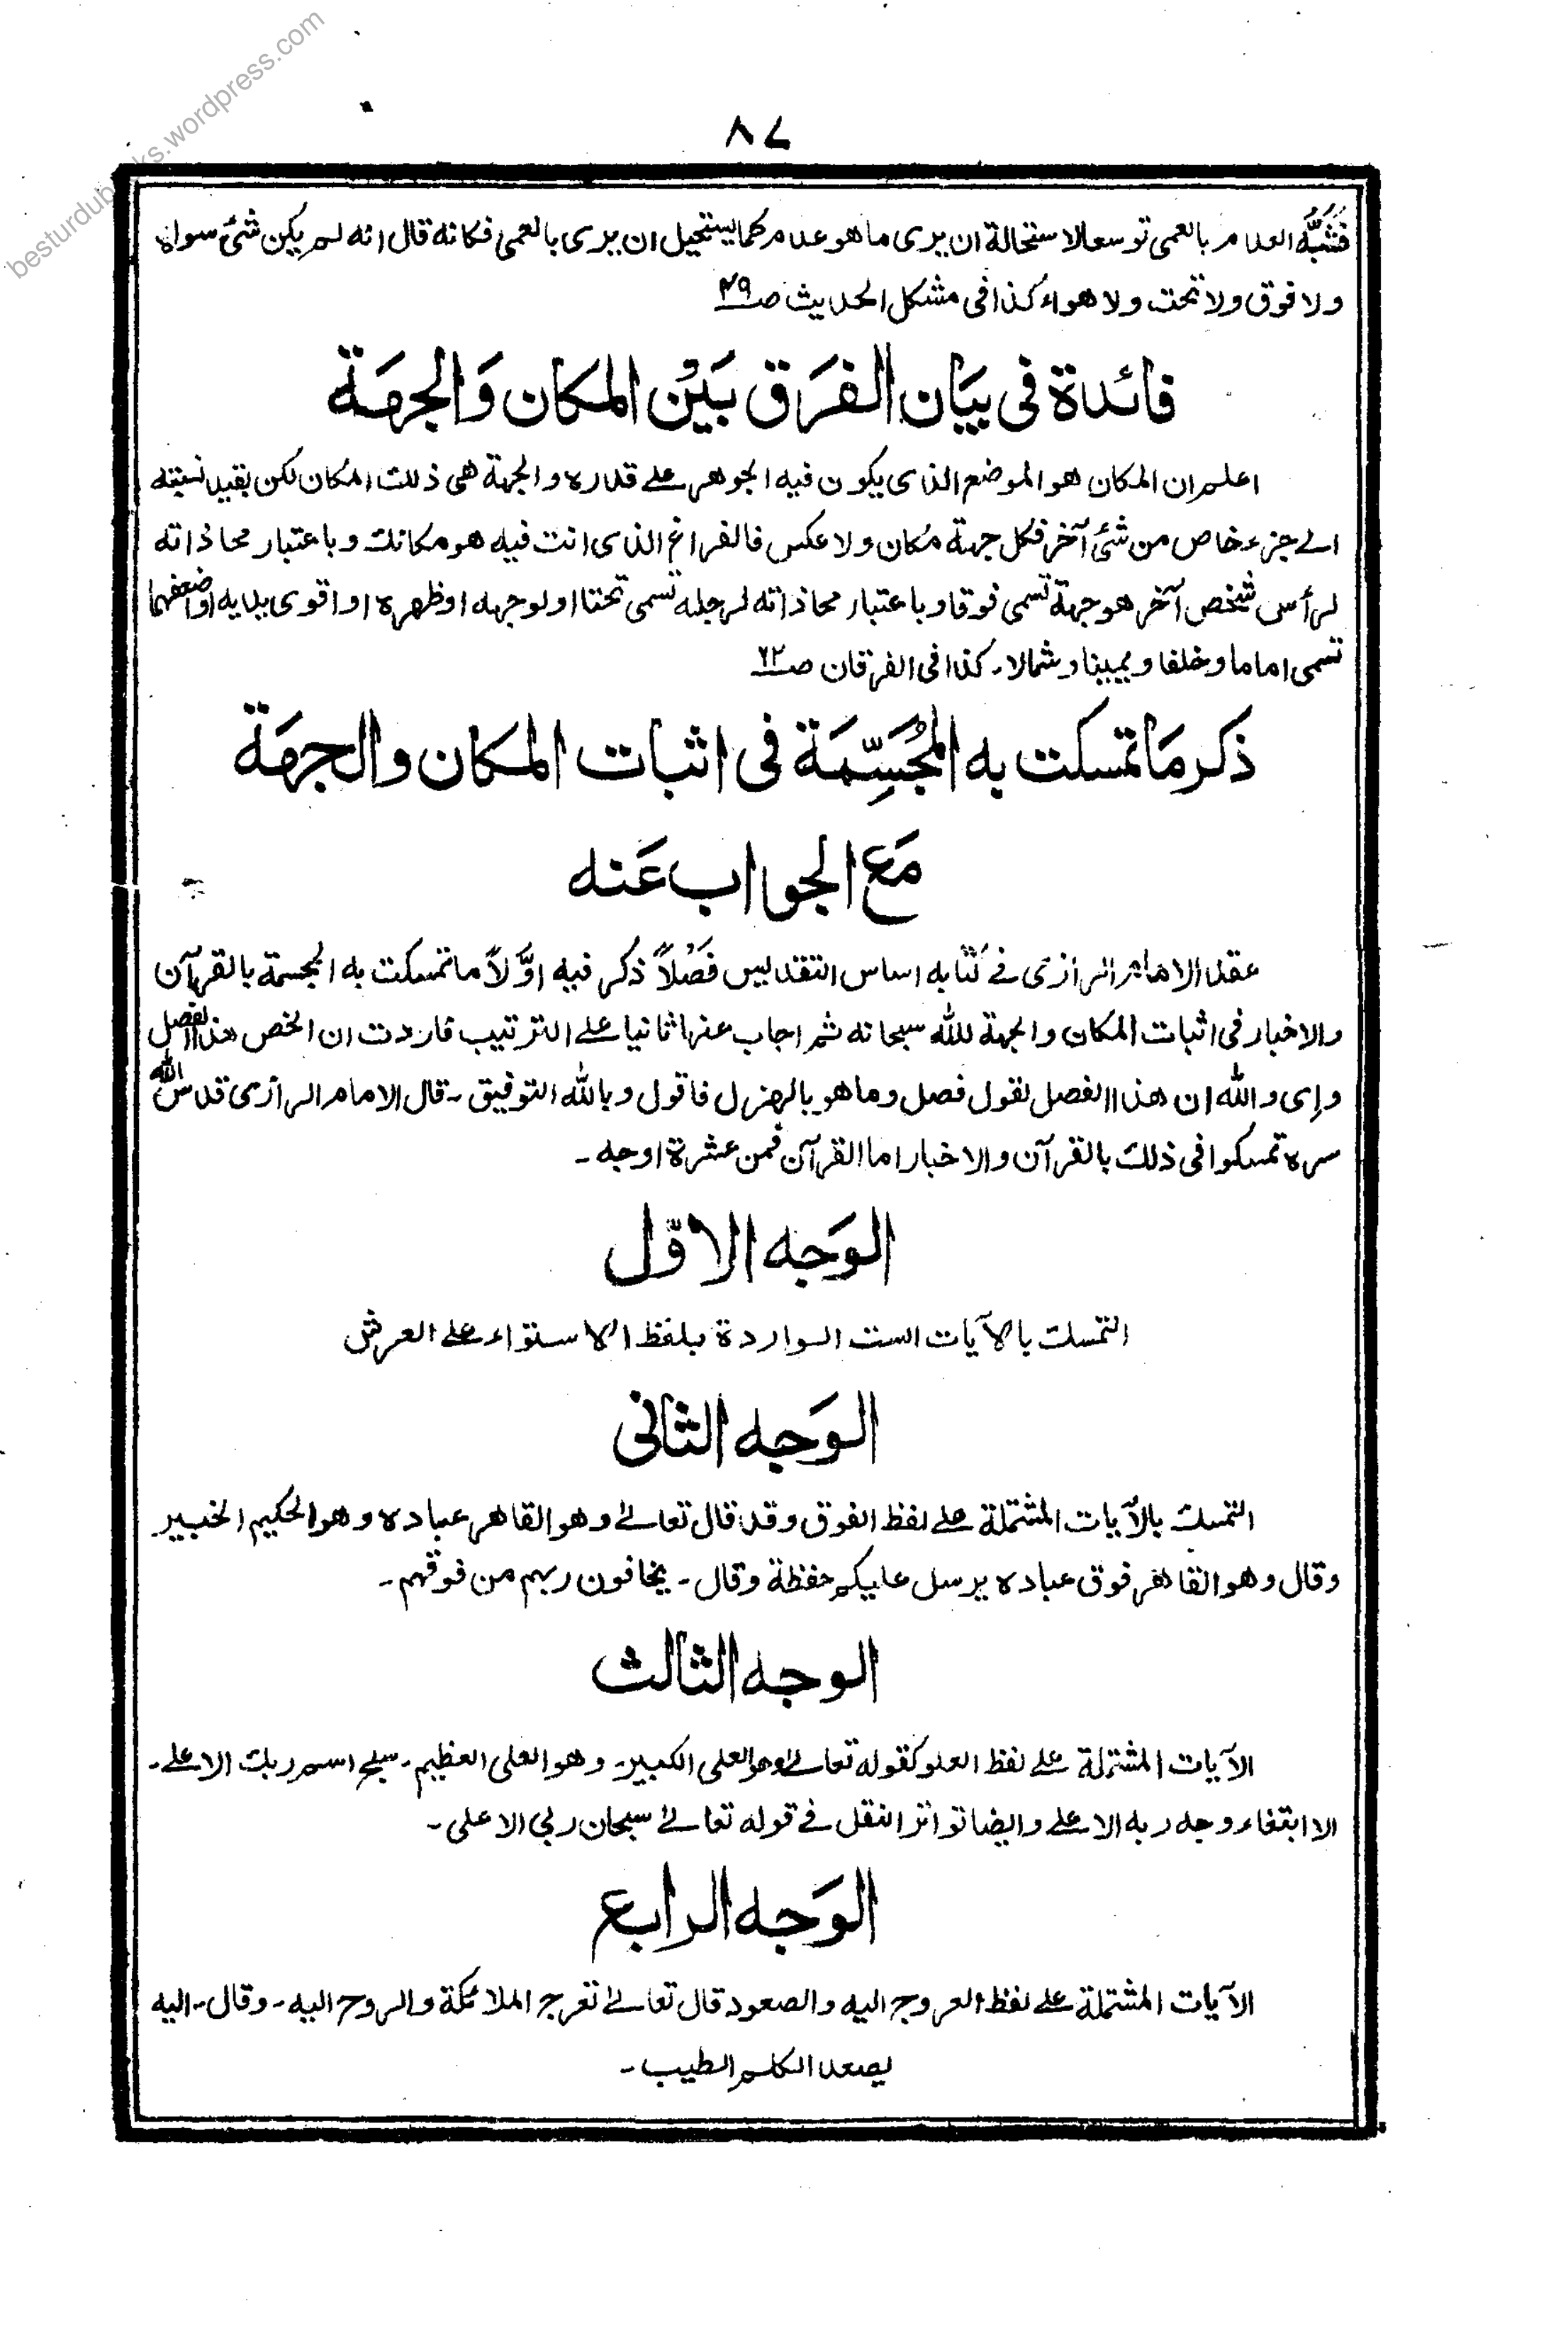 besturdubooks.wordpress.com
٨٧
فَشُبِّهَ العدم بالعمى توسعا لاستحالة ان يرى ما هو عدم كما يستحيل ان يرى بالعمى فكانه قال انه لم يكن شئ سواه
ولا فوق ولا تحت ولا هواء كذا فى مشكل الحديث صـ٤٩
فائدة فى بيَان الفرَق بَيْن المكان وَالجهَة
اعلم ان المكان هو الموضع الذى يكون فيه الجوهر على قدره والجهة هى ذلك المكان لكن بقيد نسبته
الى جزء خاص من شئ آخر فكل جهة مكان ولا عكس فالفراغ الذى انت فيه هو مكانك وباعتبار محاذاته
لرأس شخص آخر هو جهة تسمى فوقا وباعتبار محاذاته لرجله تسمى تحتا او لوجهه او ظهره او اقوى يديه او اضعفهما
تسمى اماما وخلفا ويمينا وشمالا۔ كذا فى الفرقان صـ٦٢
ذكر مَا تمسكت به المجُسِّمَة فى اثبات المكان والجهَة
مَع الجواب عَنه
عقد الامام الرازى فے كتابه اساس التقديس فَصْلاً ذكر فيه اوَّلاً ما تمسكت به المجسمة بالقرآن
والاخبار فى اثبات المكان والجهة لله سبحانه ثم اجاب عنها ثانيا على الترتيب فاردت ان الخص هذا الفصل
وإى والله ان هذا الفصل لقول فصل وما هو بالهزل فاقول وبالله التوفيق۔ قال الامام الرازى قدس الله
سره تمسكوا فى ذلك بالقرآن والاخبار اما القرآن فمن عشرة اوجه۔
الوَجه الاوّل
التمسك بالآيات الست الواردة بلفظ الاستواء على العرش
الوَجه الثانى
التمسك بالآيات المشتملة على لفظ الفوق وقد قال تعالى وهو القاهر عباده وهو الحكيم الخبير
وقال وهو القاهر فوق عباده يرسل عليكم حفظة وقال۔ يخافون ربهم من فوقهم۔
الوجه الثالث
الآيات المشتملة على لفظ العلو كقوله تعالى وهو العلى الكبير۔ وهو العلى العظيم۔ سبح اسم ربك الاعلى۔
الا ابتغاء وجه ربه الاعلى وايضا تواتر النقل فے قوله تعالى سبحان ربى الاعلى۔
الوَجه الرابع
الآيات المشتملة على لفظ العروج اليه والصعود قال تعالى تعرج الملائكة والروح اليه۔ وقال۔ اليه
يصعد الكلم الطيب۔